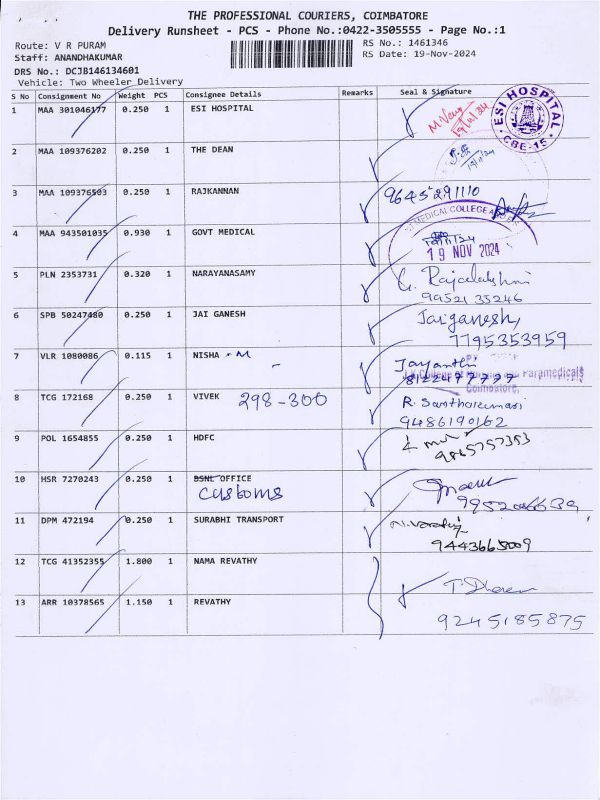 THE PROFESSIONAL COURIERS, COIMBATORE
Delivery Runsheet - PCS - Phone No.:0422-3505555 - Page No.:1
Route: V R PURAM
RS No.: 1461346
Staff: ANANDHAKUMAR
RS Date: 19-Nov-2024
DRS No.: DCJB146134601
Vehicle: Two Wheeler Delivery
S No Consignment No Weight PCS Consignee Details Remarks Seal & Signature
1 MAA 301046177 0.250 1 ESI HOSPITAL
ESI HOSPITAL
CBE-15
2 MAA 109376202 0.250 1 THE DEAN
3 MAA 109376503 0.250 1 RAJKANNAN 9645291110
4 MAA 943501035 0.930 1 GOVT MEDICAL
MEDICAL COLLEGE AND
19 NOV 2024
5 PLN 2353731 0.320 1 NARAYANASAMY G. Rajalakshmi
99521 35246
6 SPB 50247480 0.250 1 JAI GANESH Jaiganesh,
7795353959
7 VLR 1080086 0.115 1 NISHA - M Jayanthi
Paramedicals
8122477777
Coimbatore.
8 TCG 172168 0.250 1 VIVEK 298-300 R. Santhakumari
9486190162
9 POL 1654855 0.250 1 HDFC
9865757353
10 HSR 7270243 0.250 1 BSNL OFFICE
customs
11 DPM 472194 0.250 1 SURABHI TRANSPORT
9443665009
12 TCG 41352355 1.800 1 NAMA REVATHY
13 ARR 10378565 1.150 1 REVATHY
9245185875